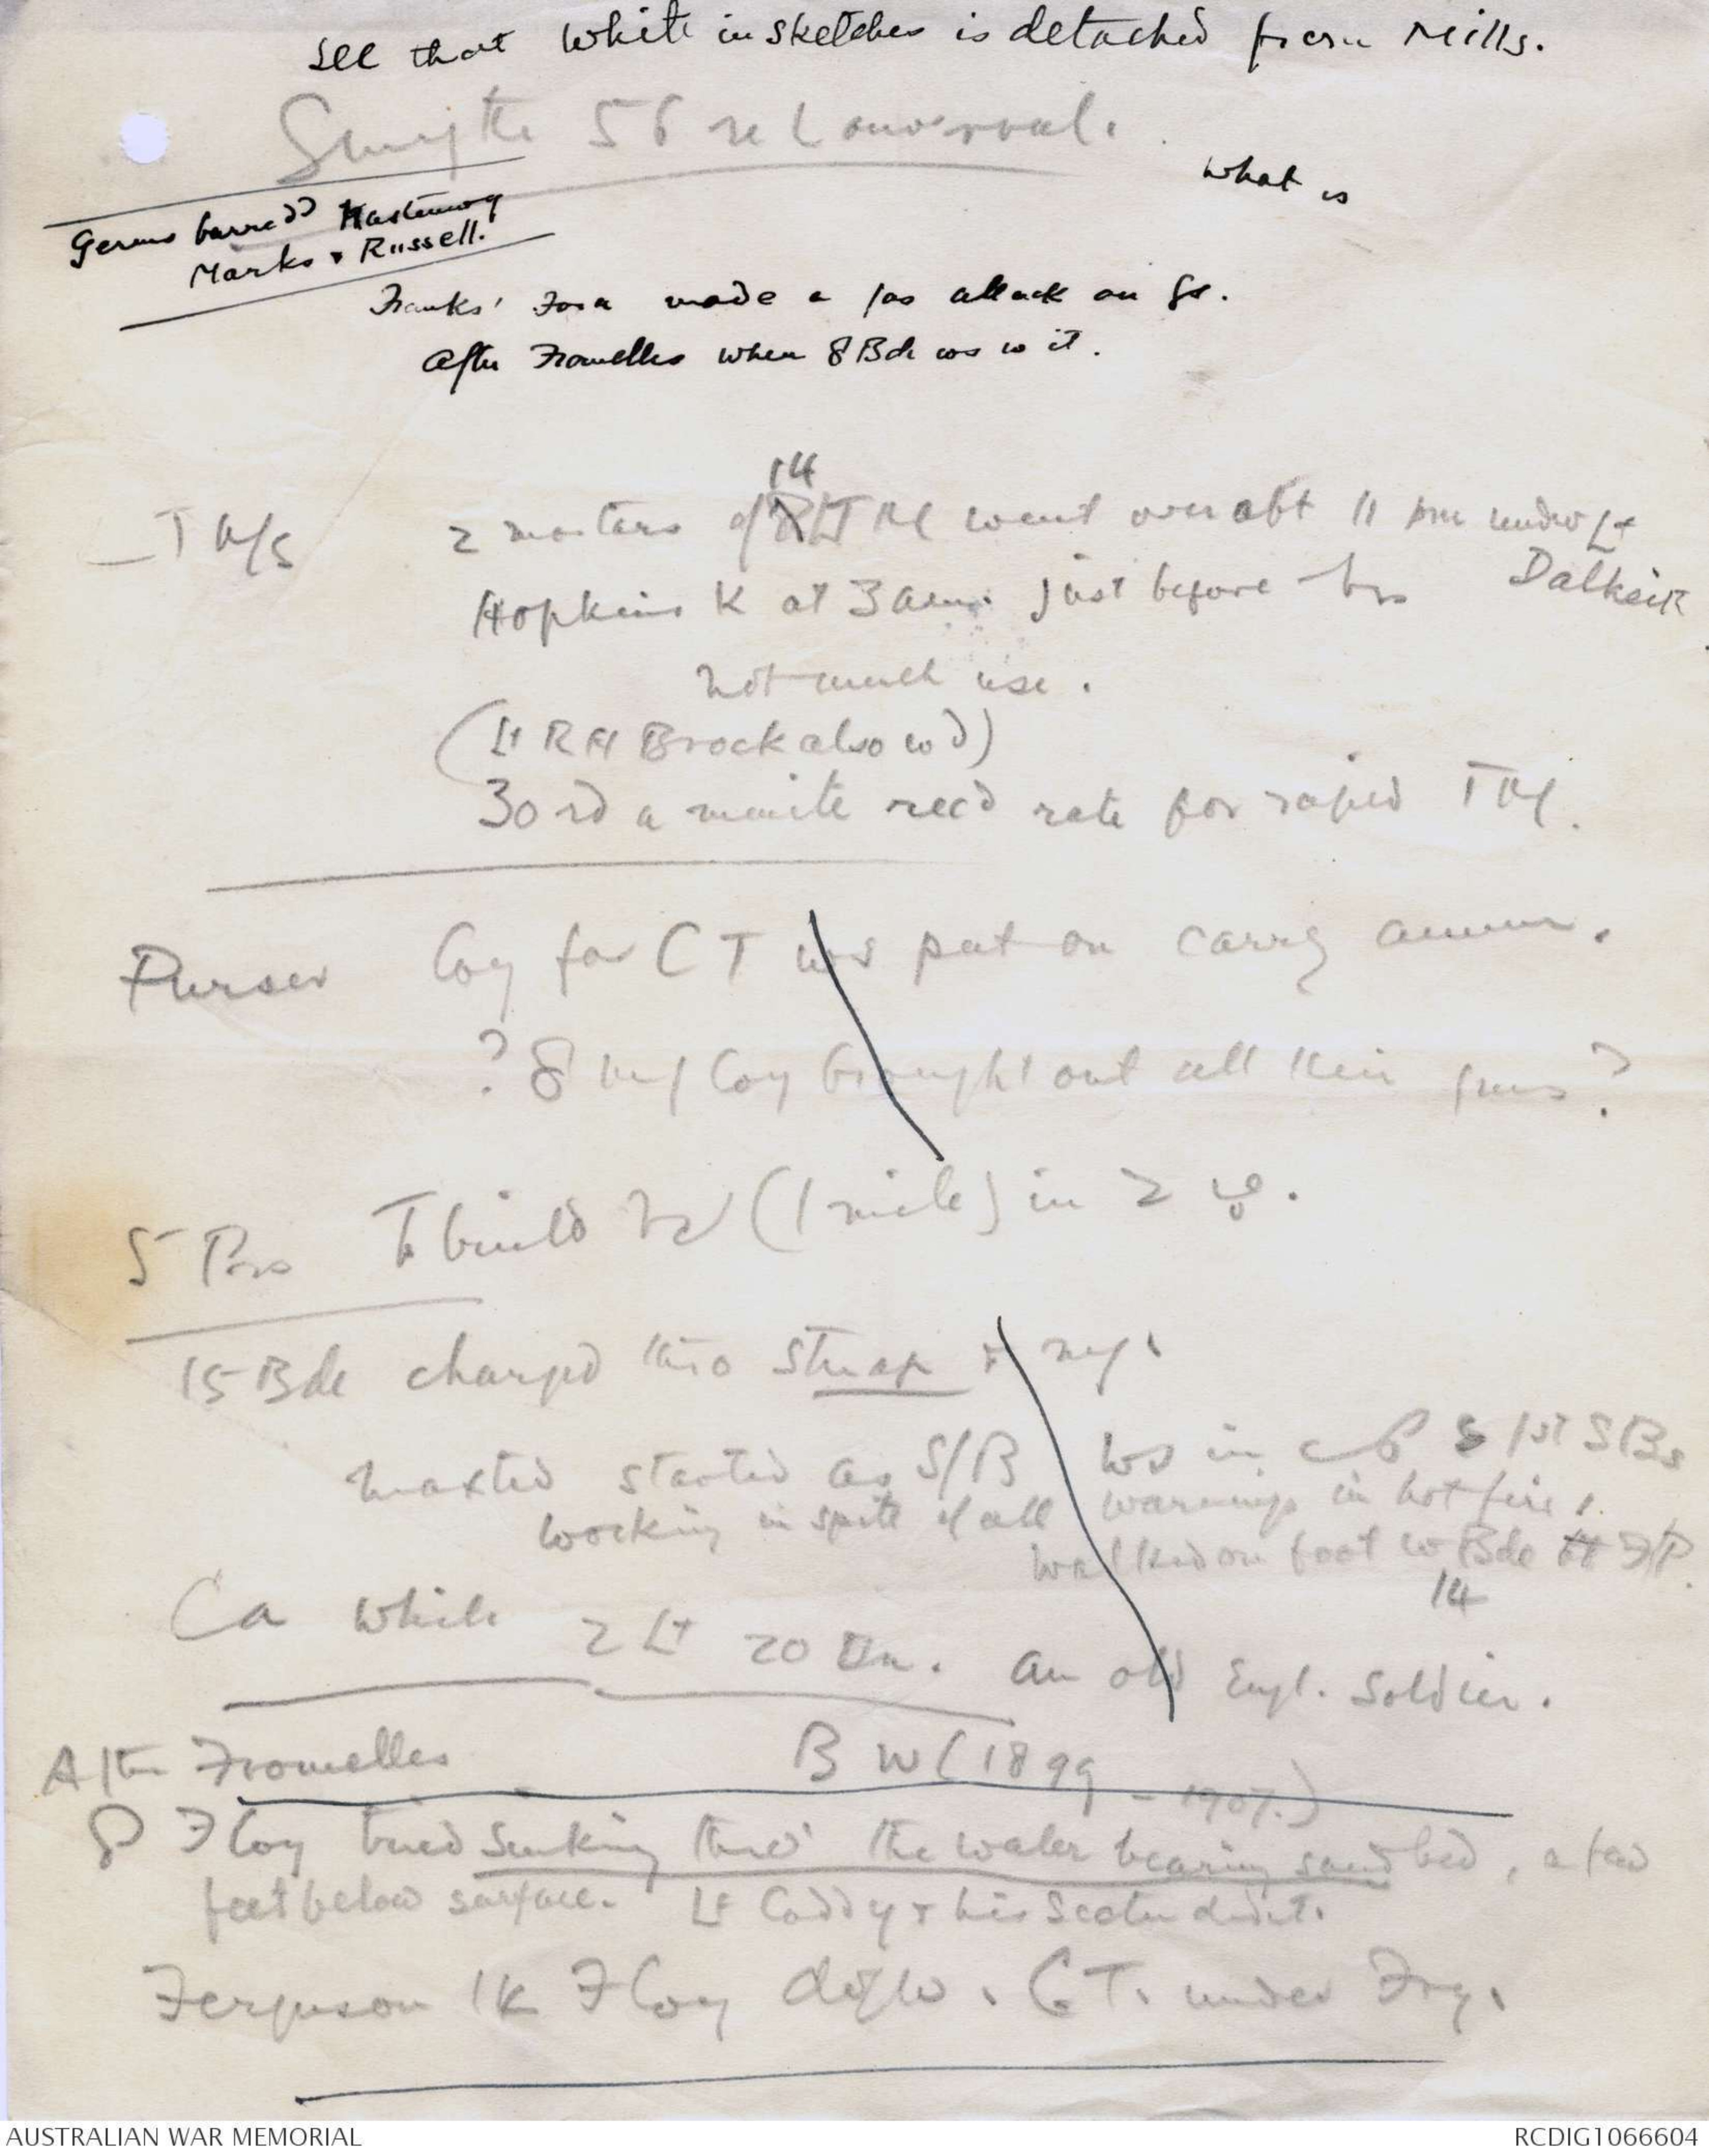 See that White in sketches is detached from Mills.
Smythe 56 re Louverval.
What is
Germs barred Hastening
Marks & Russell.
Franks' made a gas attack on Gs.
After Fromelles when 8 Bde ws w it.
14
TM/s 2 mortars of LTM went over abt 11 pm under Lt
Dalkeith
Hopkins K at 3 am. just before
not much use.
(Lt R H Brock also wd)
30 rd a minute recd rate for rapid TM.
Purser Coy for CT ws put on carrg ammn.
? 8 m/g Coy brought out all their guns?
5 Pnrs To build (1 mile) in 2
15 Bde charged thro & mg.
Maxted started as S/B ws in S 1st SBs
working in spite of all warnings in hot fire.
walked on foot w Bde
14
Ca while 2 Lt 20 Bn. an old Engl. Soldier.
After Fromelles B W (1899 - 1907.)
8 F Coy tried sinking thro' the water bearing sand bed, a few
feet below surface. Lt Caddy & his Section did it.
Ferguson 14 F Coy C.T. under Fry.
AUSTRALIAN WAR MEMORIAL
RCDIG1066604